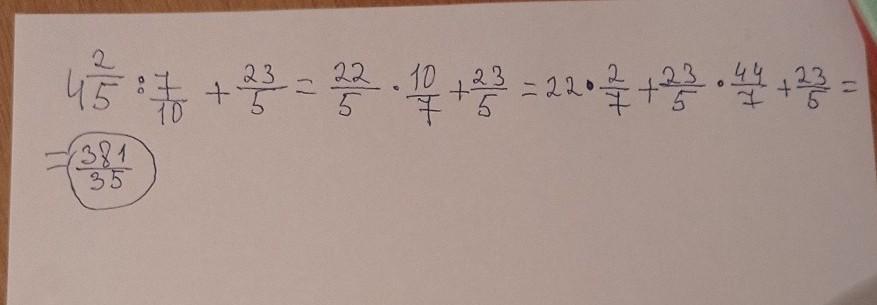 4 2/5 : 7/10 + 23/5 = 22/5 · 10/7 + 23/5 = 22 · 2/7 + 23/5 · 44/7 + 23/5 =
= 381/35